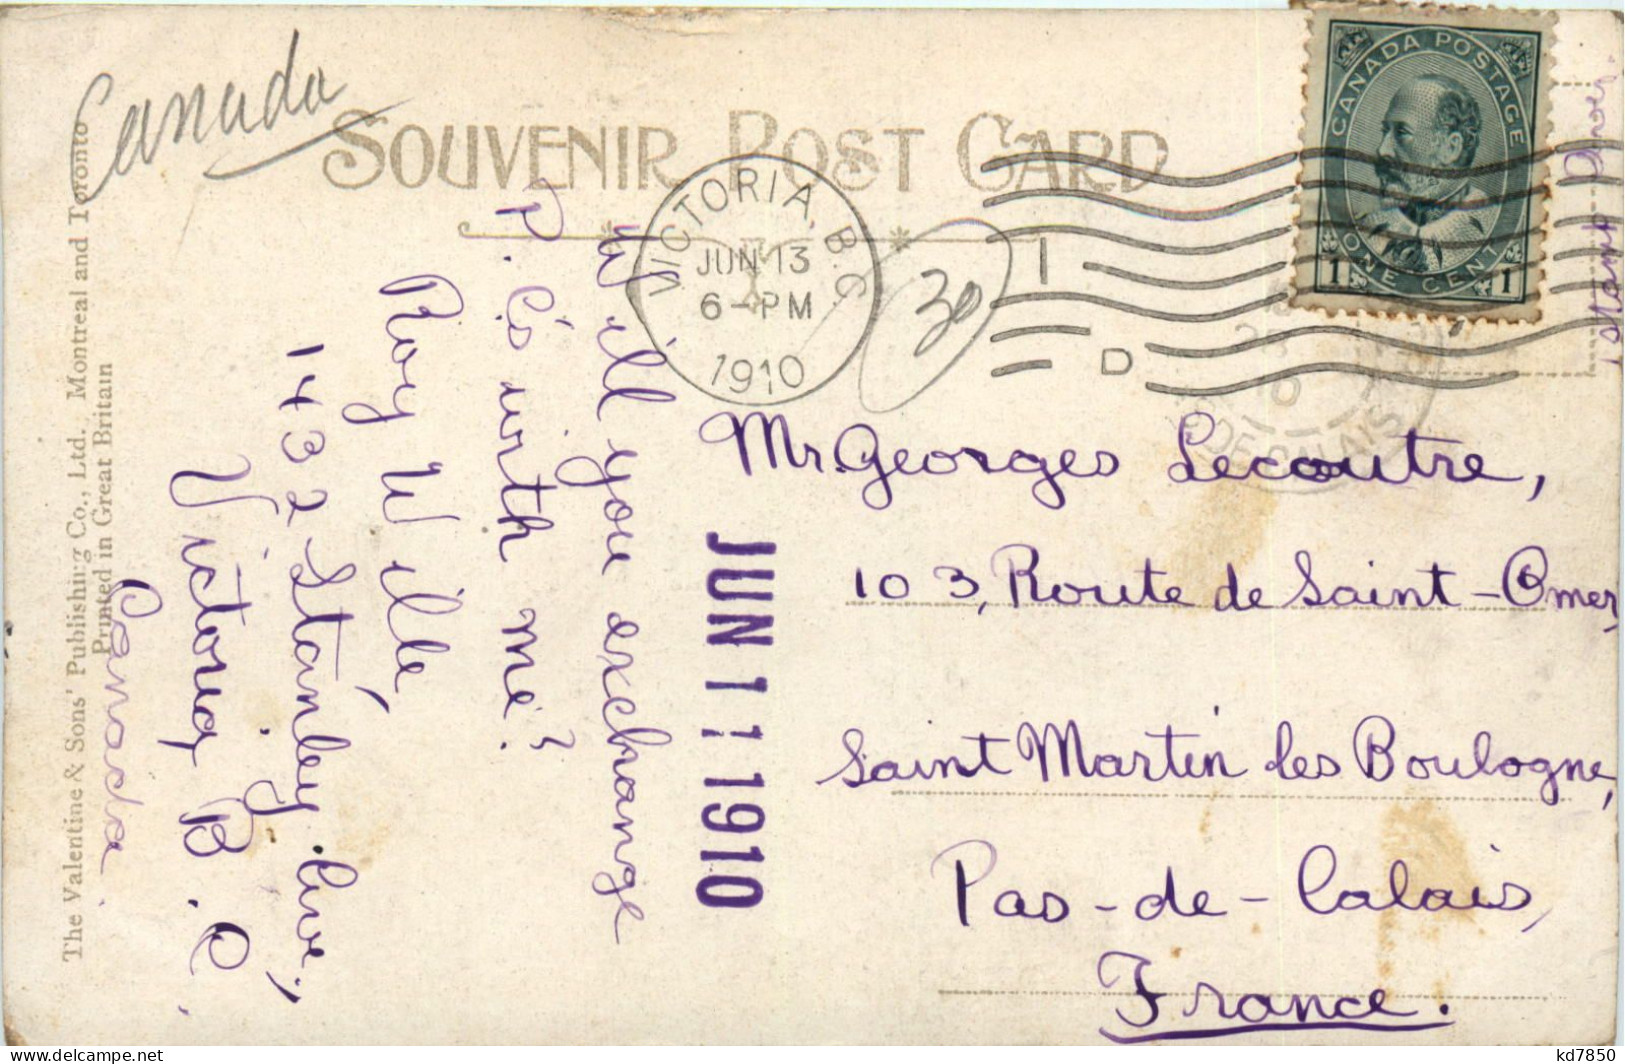 Canada
SOUVENIR POST CARD
VICTORIA, B.C.
JUN 13
6-PM
1910
I
D
30
CANADA POSTAGE
1 ONE CENT 1
stamp over.
DE CALAIS
Will you exchange
P. C's with me?
Roy Wille,
1432 Stanley Ave,
Victoria, B.C.
Canada.
JUN 11 1910
Mr. Georges Lecoutre,
103, Route de Saint-Omer,
Saint Martin les Boulogne,
Pas-de-Calais,
France.
The Valentine & Sons' Publishing Co., Ltd., Montreal and Toronto
Printed in Great Britain
kd7850